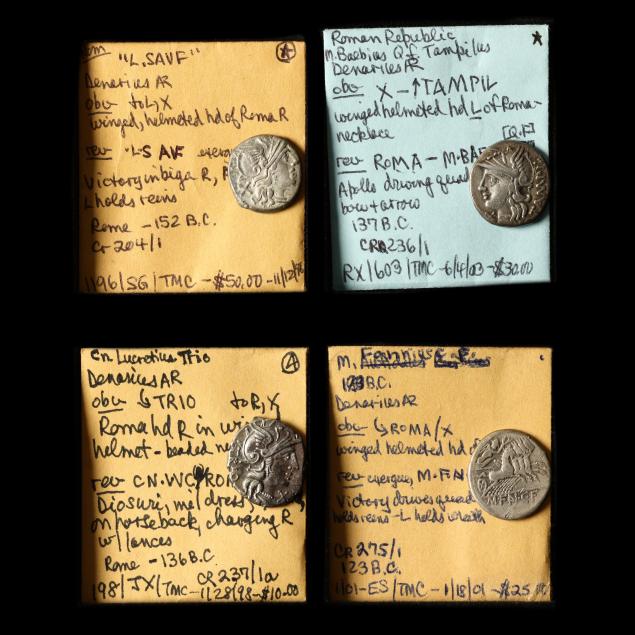 "L. SAVF"
Denarius AR
obv to L, X
winged, helmeted hd of Roma R
rev "L. SAVF
Victory in biga R,
L holds reins
Rome - 152 B.C.
Cr 204/1
1196/SG/TMC - $50.00 - 11/12/96
Roman Republic
M. Baebius Q.f. Tampilus
Denarius AR
obv X - ↑TAMPIL
winged helmeted hd L of Roma -
necklace
[Q.F]
rev ROMA - M. BAE
Apollo driving quad
bow + arrow
137 B.C.
CR 236/1
RX/603/TMC - 6/4/03 - $30.00
Cn. Lucretius Trio
Denarius AR
obv ↳TRIO to R, X
Roma hd R in
helmet - beaded
rev CN. LVCR
Dioscuri,
on horseback, charging R
w/ lances
Rome - 136 B.C.
CR 237/1a
198/JX/TMC - 1/28/98 - $10.00
A
M. Fannius C. F.
123 B.C.
Denarius AR
obv ↳ROMA/X
winged helmeted hd of
rev exergue, M. FAN
Victory drives quad
holds reins - L holds wreath
CR 275/1
123 B.C.
1/01-ES/TMC - 1/18/01 - $25.00